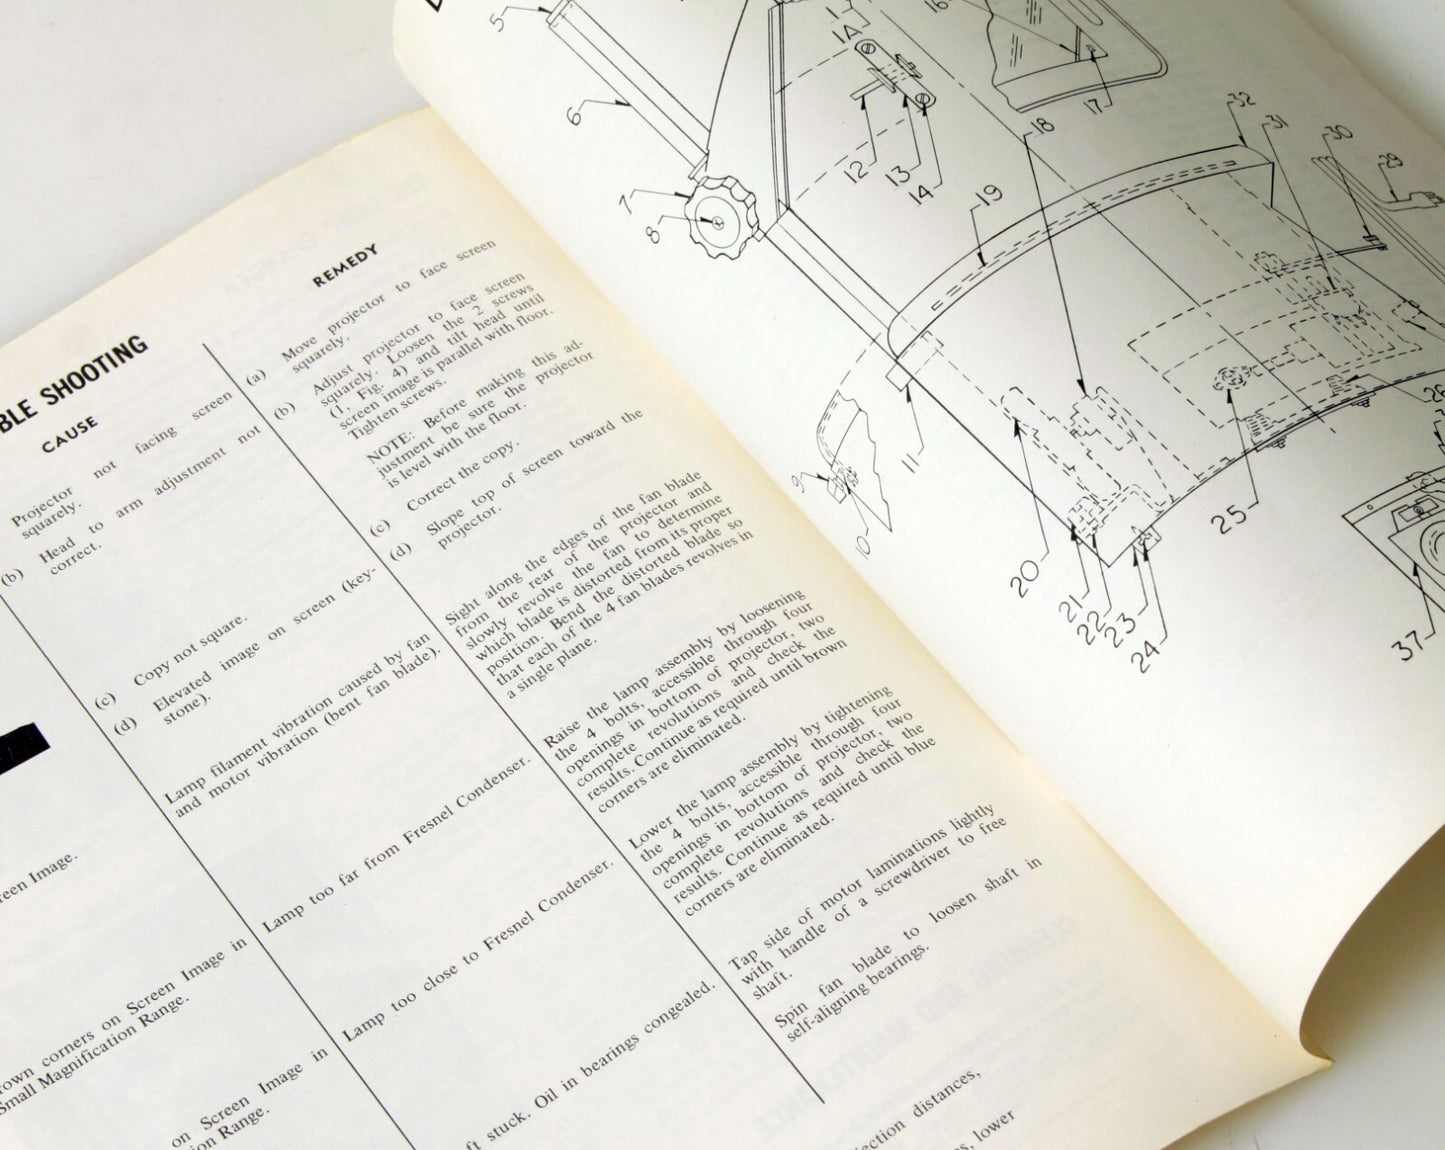 BLE SHOOTING
CAUSE
Projector not facing screen
squarely.
(b) Head to arm adjustment not
correct.
(c) Copy not square.
(d) Elevated image on screen (key-
stone).
Lamp filament vibration caused by fan
and motor vibration (bent fan blade).
Lamp too far from Fresnel Condenser.
Lamp too close to Fresnel Condenser.
ft stuck. Oil in bearings congealed.
reen Image.
rown corners on Screen Image in
Small Magnification Range.
on Screen Image in
ion Range.
REMEDY
(a) Move projector to face screen
squarely.
(b) Adjust projector to face screen
squarely. Loosen the 2 screws
(1, Fig. 4) and tilt head until
screen image is parallel with floor.
Tighten screws.
NOTE: Before making this ad-
justment be sure the projector
is level with the floor.
(c) Correct the copy.
(d) Slope top of screen toward the
projector.
Sight along the edges of the fan blade
from the rear of the projector and
slowly revolve the fan to determine
which blade is distorted from its proper
position. Bend the distorted blade so
that each of the 4 fan blades revolves in
a single plane.
Raise the lamp assembly by loosening
the 4 bolts, accessible through four
openings in bottom of projector, two
complete revolutions and check the
results. Continue as required until brown
corners are eliminated.
Lower the lamp assembly by tightening
the 4 bolts, accessible through four
openings in bottom of projector, two
complete revolutions and check the
results. Continue as required until blue
corners are eliminated.
Tap side of motor laminations lightly
with handle of a screwdriver to free
shaft.
Spin fan blade to loosen shaft in
self-aligning bearings.
ection distances,
s, lower
5
6
7
8
9
10
11
1A
12
13
14
16
17
18
19
20
21
22
23
24
25
26
29
30
31
32
37